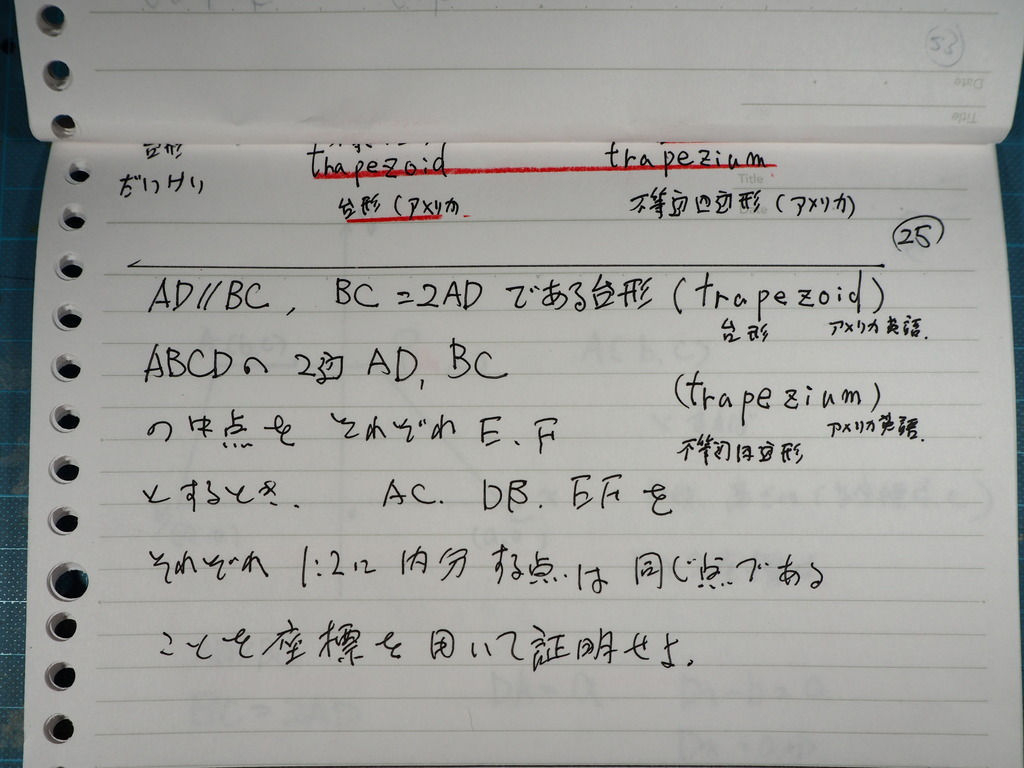 53
Date
Title
台形
だけけり
trapezoid
trapezium
Title
台形(アメリカ
不等辺四辺形(アメリカ)
25
AD//BC, BC=2ADである台形(trapezoid)
台形 アメリカ英語.
ABCDの2辺AD, BC
(trapezium)
アメリカ英語.
の中点をそれぞれE.F
不等辺四辺形
とするとき. AC. DB. EFを
それぞれ1:2に内分する点は同じ点である
ことを座標を用いて証明せよ.